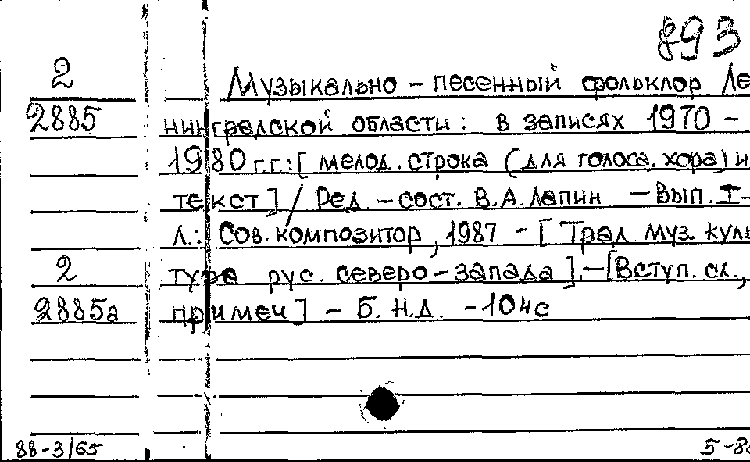 893
2
Музыкально - песенный фольклор Ле
2885
нинградской области: в записях 1970 -
1980 г.г.: [ мелод. строка (для голоса, хора) и
текст] / Ред. - сост. В.А. Лапин - Вып. I -
Л.: Сов. композитор, 1987 - [ Трад муз. куль
2
тура рус. северо-запада ]. - [Вступ. ст.,
2885а
примеч] - Б. Н.Д. - 104с
88-3/65
5-8